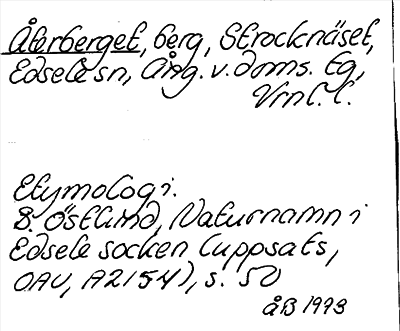 Återberget, berg, Strocknäset,
Edsele sn, Ång. v. doms. tg,
Vrnl. l.
Etymologi.
B. Östlund, Naturnamn i
Edsele socken (uppsats,
OAU, A2154), s. 50
ÅB 1993